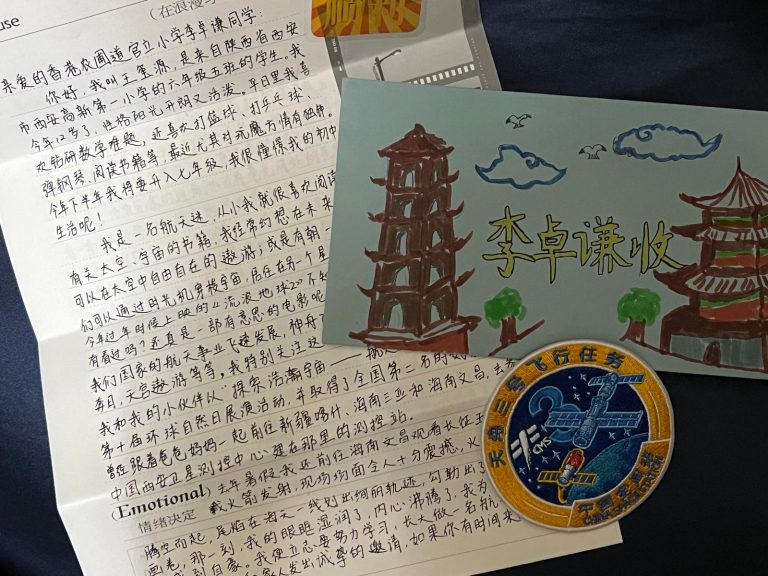 use
(在浪漫
亲爱的香港农圃道官立小学李卓谦同学:
你好,我叫王玺源,是来自陕西省西安
市西安高新第一小学的六年级五班的学生。我
今年12岁了,性格阳光开朗又活泼。平日里我喜
欢钻研数学难题,还喜欢打篮球、打乒乓球、
弹钢琴、阅读书籍等,最近尤其对玩魔方情有独钟。
今年下半年我将要升入七年级,我很憧憬我的初中
生活呢!
我是一名航天迷,从小我就很喜欢阅读
有关太空、宇宙的书籍,我经常幻想在未来
可以在太空中自由自在的遨游;或是有朝一
们可以通过时光机穿梭宇宙,居住在另一个星
今年过年时候上映的《流浪地球2》不知
有看过吗?还真是一部有意思的电影呢
我们国家的航天事业飞速发展,神舟
奔月,天宫遨游等等。我特别关注这
我和我的小伙伴以"探索浩瀚宇宙——航
第十届环球自然日展演活动,并取得了全国第二名的
曾经跟着爸爸妈妈一起前往新疆喀什、海南三亚和海南文昌,去参
中国西安卫星测控中心建在那里的测控站。
去年暑假我还前往海南文昌观看长征五
(Emotional)
载火箭发射,现场场面令人十分震撼,火
情绪决定
腾空而起,尾焰在海天一线划出绚丽的轨迹,勾勒出了
画卷,那一刻,我的眼眶湿润了,内心沸腾了,我为
到自豪。我便立志要努力学习,长大做一名航
家人发出诚挚的邀请,如果你有时间来
李卓谦收
天舟三号飞行任务
CMS
中国空间站
CHINA SPACE STATION